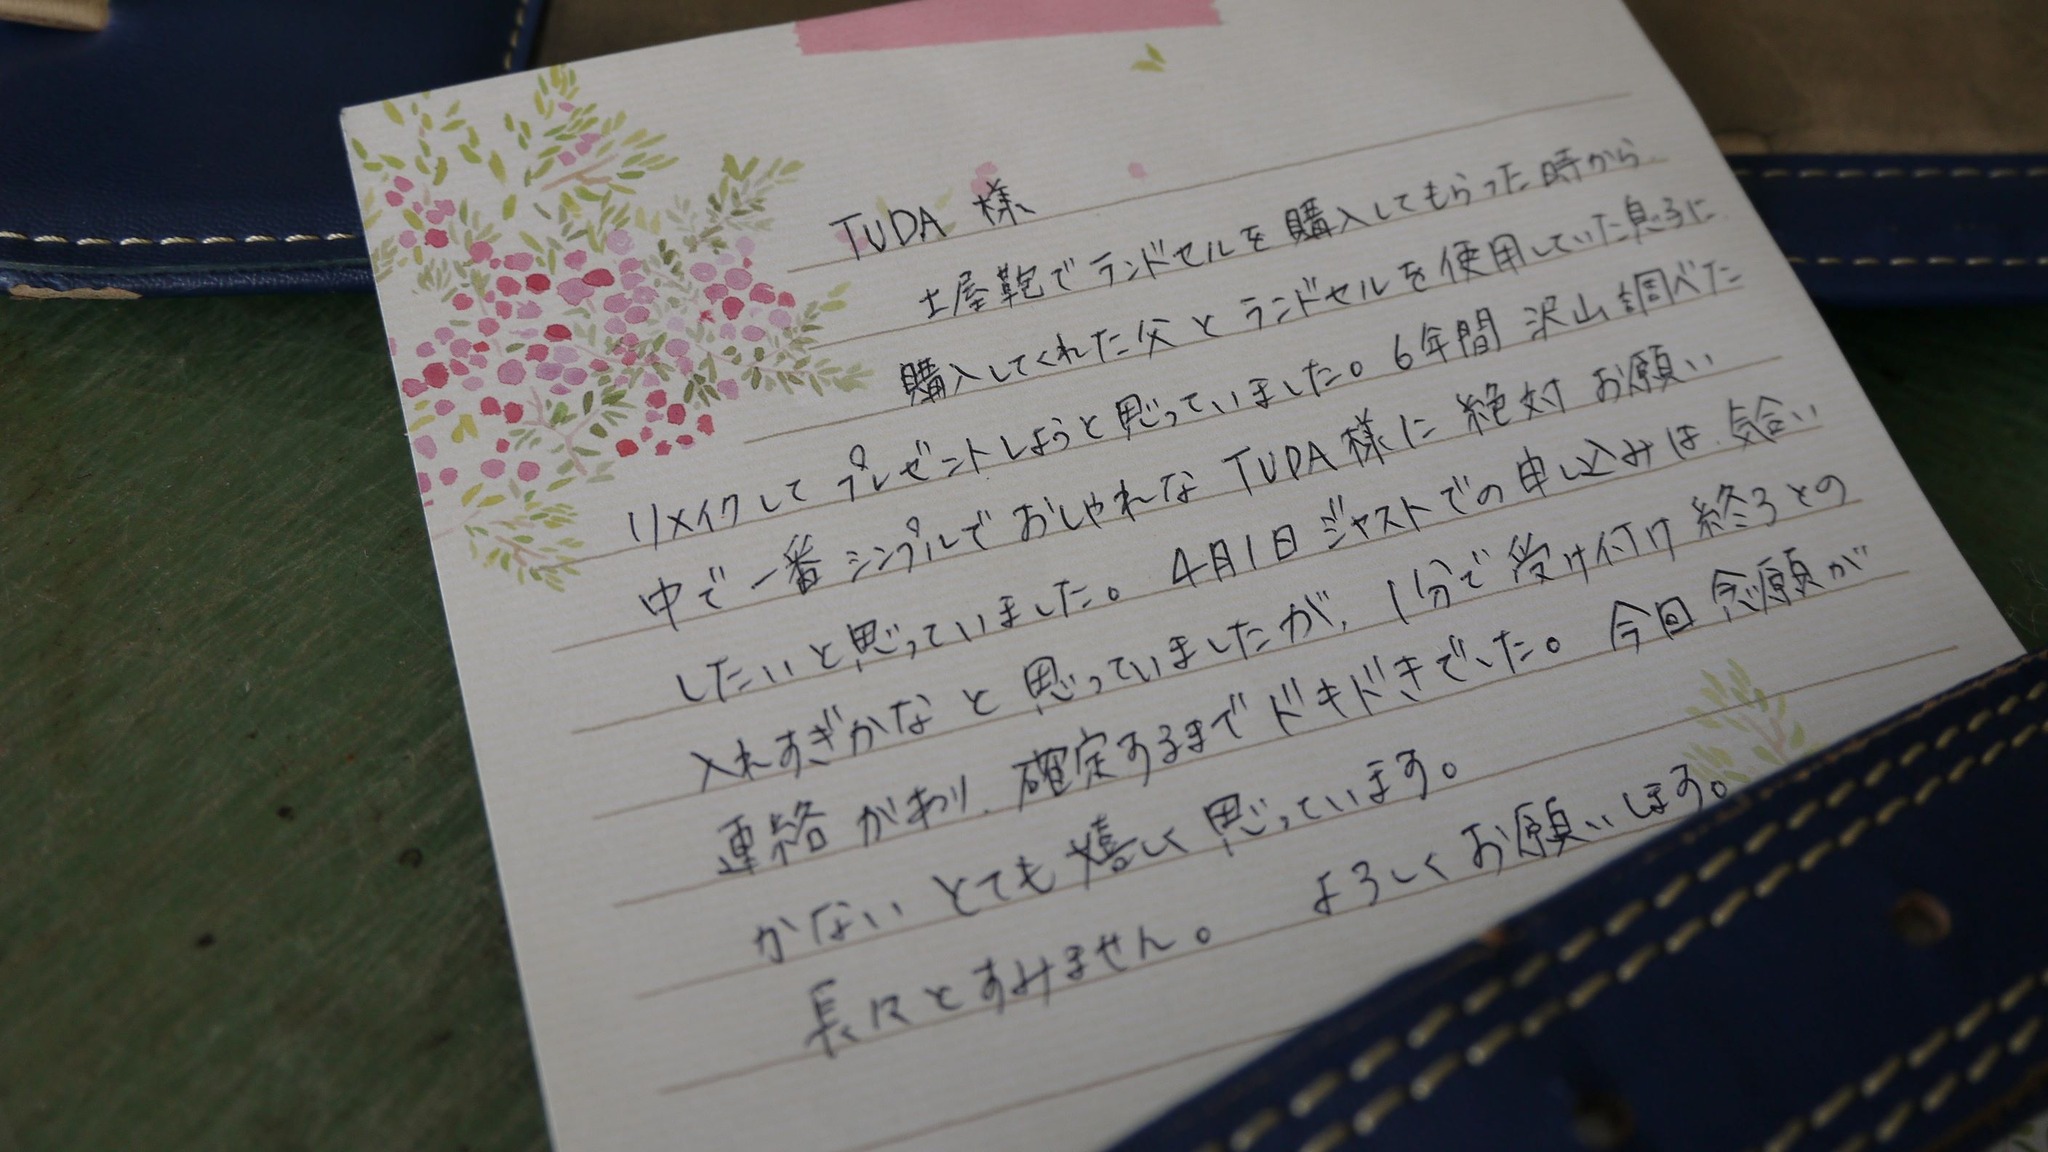 TUDA 様
土屋鞄でランドセルを購入してもらった時から
購入してくれた父とランドセルを使用していた息子に
リメイクしてプレゼントしようと思っていました。6年間 沢山調べた
中で一番シンプルでおしゃれなTUDA様に絶対お願い
したいと思っていました。4月1日ジャストでの申し込みは、気合い
入れすぎかなと思っていましたが、1分で受け付け終了との
連絡がありい、確定するまでドキドキでした。今回念願が
かない とても嬉しく思っています。
長々とすみません。 よろしくお願いします。